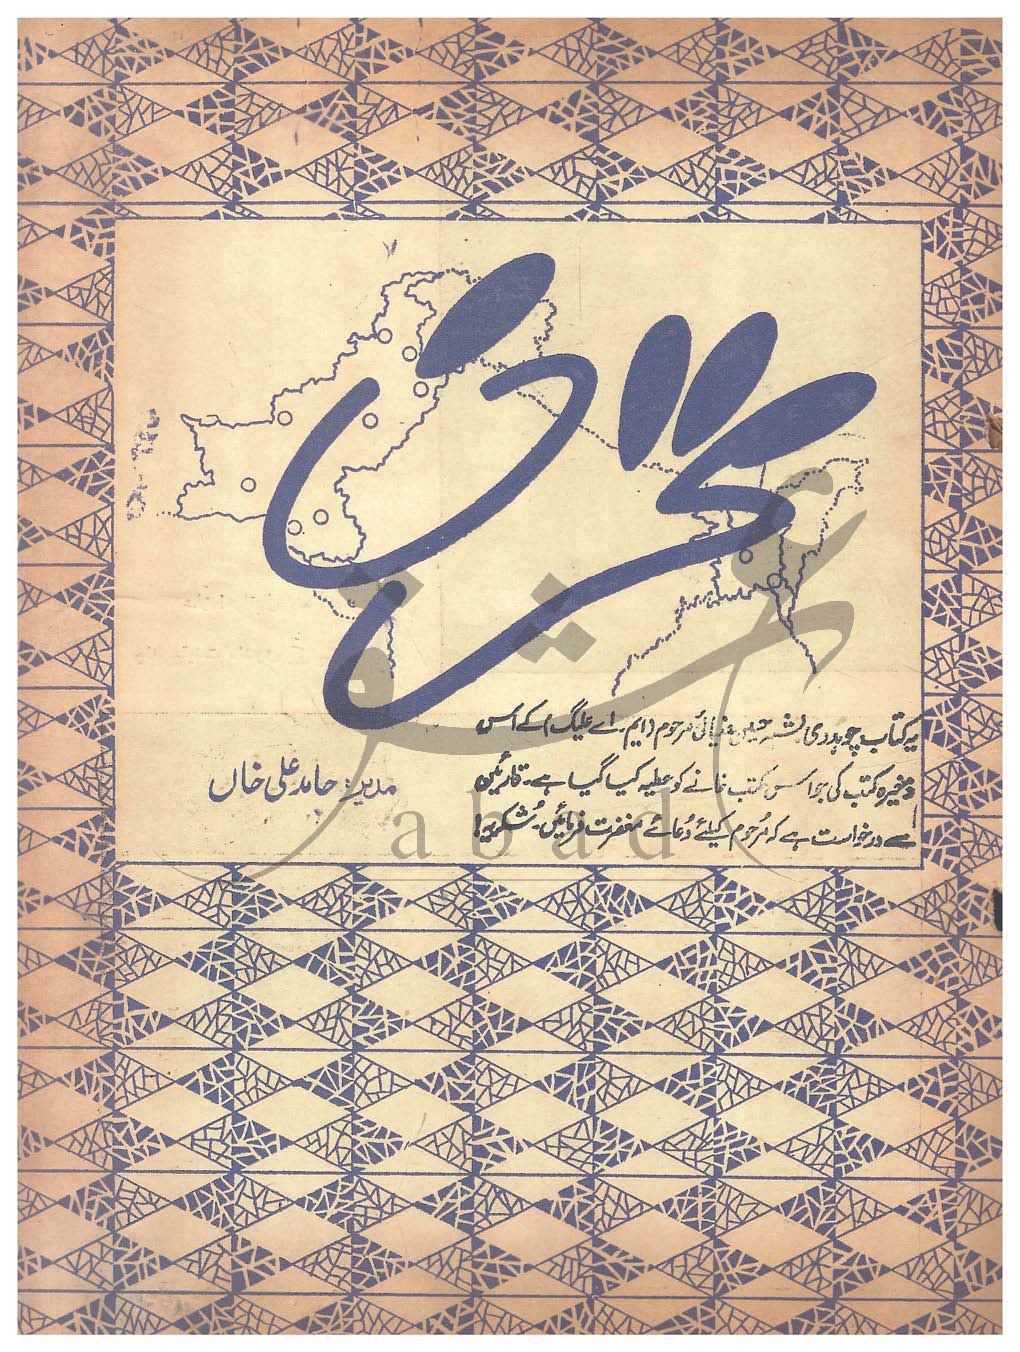 مخزن
یہ کتاب چوہدری مرحوم (ایم۔اے علیگ) کے اس
ذخیرہ کتب کی ہے جو اس کتب خانے کو عطیہ کیا گیا ہے۔ قارئین
سے درخواست ہے کہ مرحوم کیلئے دُعائے مغفرت فرمائیں۔ شکریہ!
مدیر: حامد علی خاں
عشق
abad